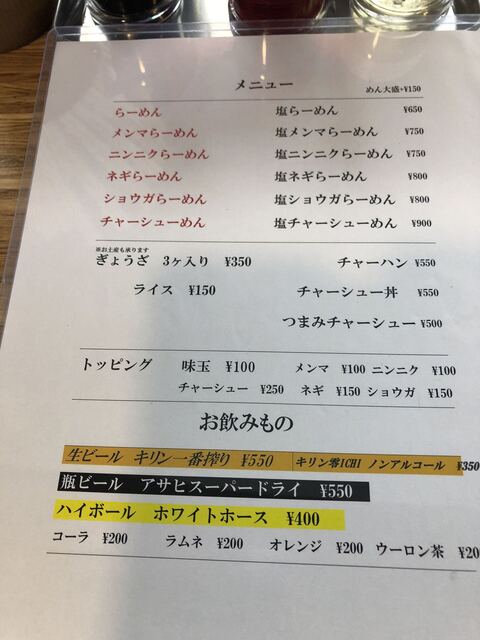 メニュー めん大盛+¥150
らーめん 塩らーめん ¥650
メンマらーめん 塩メンマらーめん ¥750
ニンニクらーめん 塩ニンニクらーめん ¥750
ネギらーめん 塩ネギらーめん ¥800
ショウガらーめん 塩ショウガらーめん ¥800
チャーシューめん 塩チャーシューめん ¥900
※お土産も承ります
ぎょうざ 3ヶ入り ¥350 チャーハン ¥550
ライス ¥150 チャーシュー丼 ¥550
つまみチャーシュー ¥500
トッピング 味玉 ¥100 メンマ ¥100 ニンニク ¥100
チャーシュー ¥250 ネギ ¥150 ショウガ ¥150
お飲みもの
生ビール キリン一番搾り ¥550 キリン零ICHI ノンアルコール ¥350
瓶ビール アサヒスーパードライ ¥550
ハイボール ホワイトホース ¥400
コーラ ¥200 ラムネ ¥200 オレンジ ¥200 ウーロン茶 ¥20